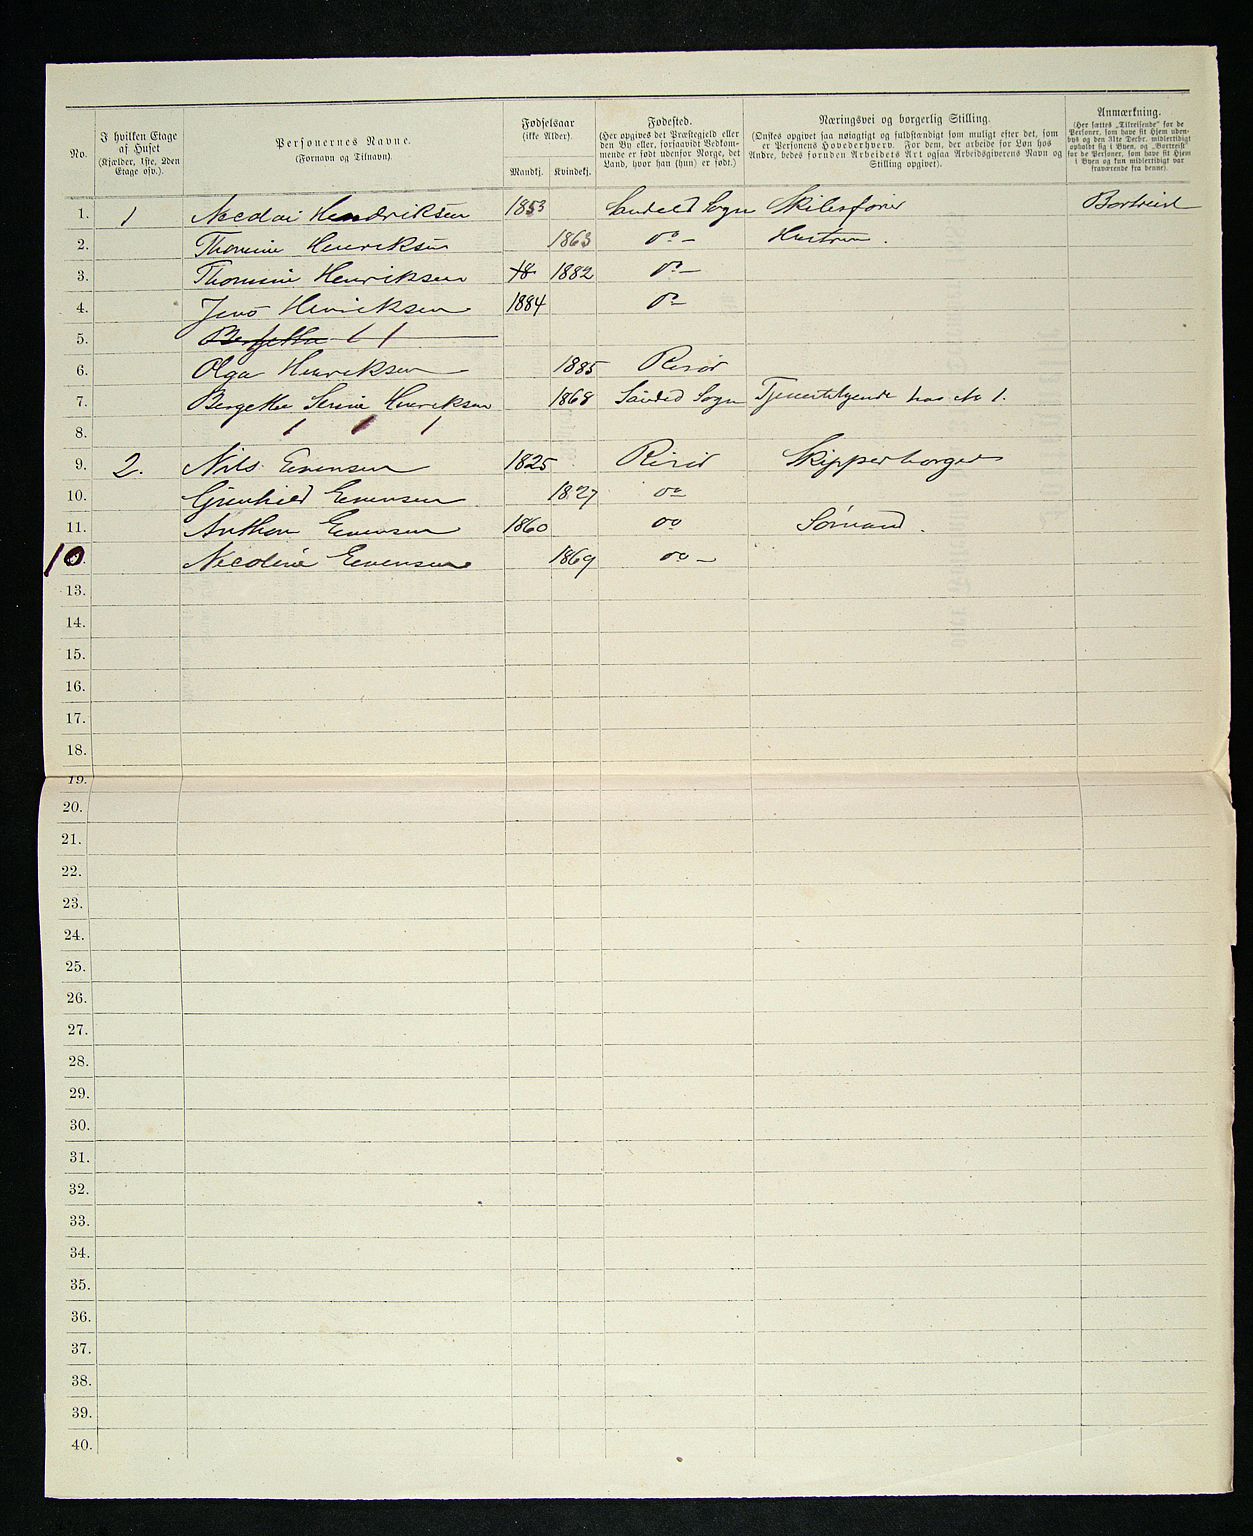 No.
I hvilken Etage af Huset (Kjælder, 1ste, 2den Etage osv.).
Personernes Navne. (Fornavn og Tilnavn).
Fødselsaar (ikke Alder).
Mandkj. Kvindekj.
Fødested. (Her opgives det Præstegjeld eller den By eller, forsaavidt Vedkommende er født udenfor Norge, det Land, hvor han (hun) er født.)
Næringsvei og borgerlig Stilling. (Ønskes opgivet saa nøiagtigt og fuldstændigt som muligt efter det, som er Personens Hovederhverv. For dem, der arbeide for Løn hos Andre, bedes foruden Arbeidets Art ogsaa Arbeidsgiverens Navn og Stilling opgivet).
Anmærkning. (Her sættes „Tilreisende" for de Personer, som have sit Hjem udenbys og den 31te Decbr. midlertidigt opholdt sig i Byen, og „Bortreist" for de Personer, som have sit Hjem i Byen og kun midlertidigt var fraværende fra denne).
1. 1 Nicolai Hendriksen 1853 Søndeled Sogn Skibsfører Bortreist
2. Thomine Henriksen 1863 do - Hustru.
3. Thomine Henriksen 18 1882 do -
4. Jens Henriksen 1884 do -
5. Bergethe 1 1
6. Olga Henriksen 1885 Risør
7. Bergethe Serine Henriksen 1868 Søndled Sogn Tjenestepigende hos No 1.
8. 1 1 1
9. 2. Nils Evensen 1825 Risør Skipperborger
10. Gunhild Evensen 1827 do
11. Anthon Evensen 1860 do Sømand.
10 Nicoline Evensen 1869 do -
13.
14.
15.
16.
17.
18.
19.
20.
21.
22.
23.
24.
25.
26.
27.
28.
29.
30.
31.
32.
33.
34.
35.
36.
37.
38.
39.
40.